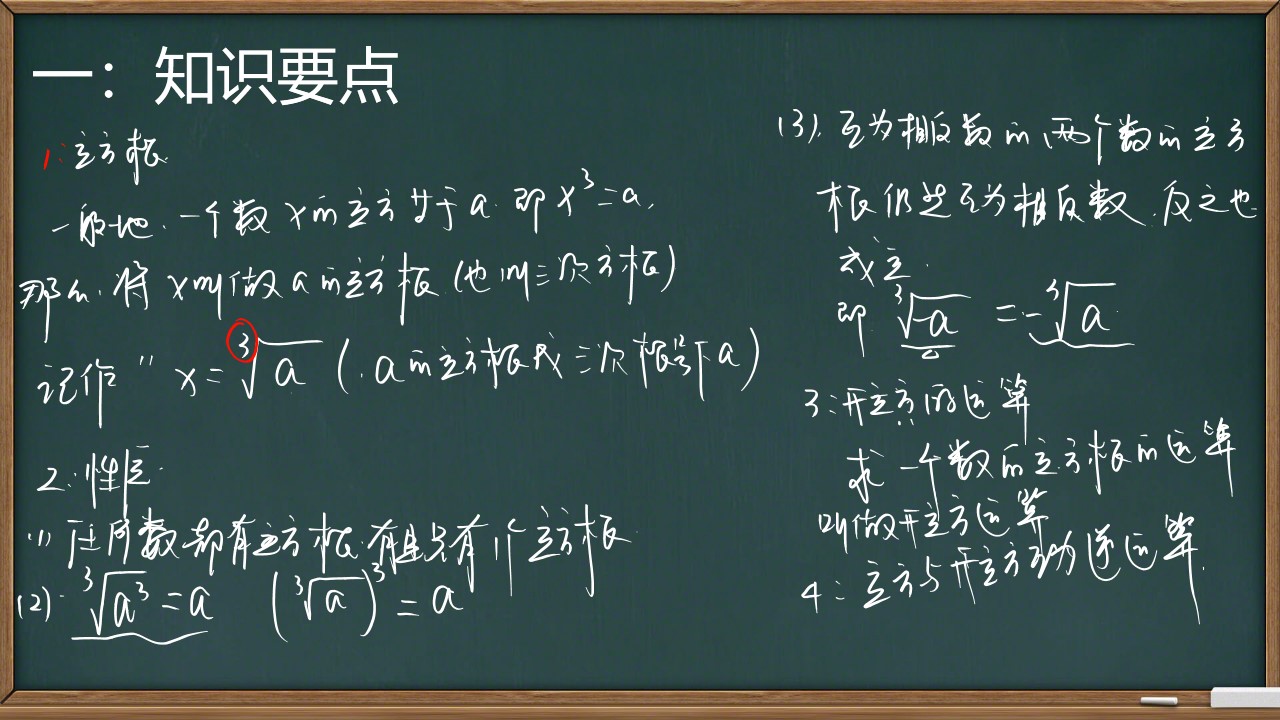 一：知识要点
1：立方根
一般地，一个数x的立方等于a，即x³=a，
那么，将x叫做a的立方根（也叫三次方根）
记作“x=∛a（a的立方根或三次根号下a）
2：性质
(1)任何数都有立方根，有且只有1个立方根
(2)∛a³=a (∛a)³=a
(3)．互为相反数的两个数的立方
根仍是互为相反数，反之也
成立．
即∛-a=-∛a
3：开立方的运算
求一个数的立方根的运算
叫做开立方运算
4：立方与开立方互为逆运算